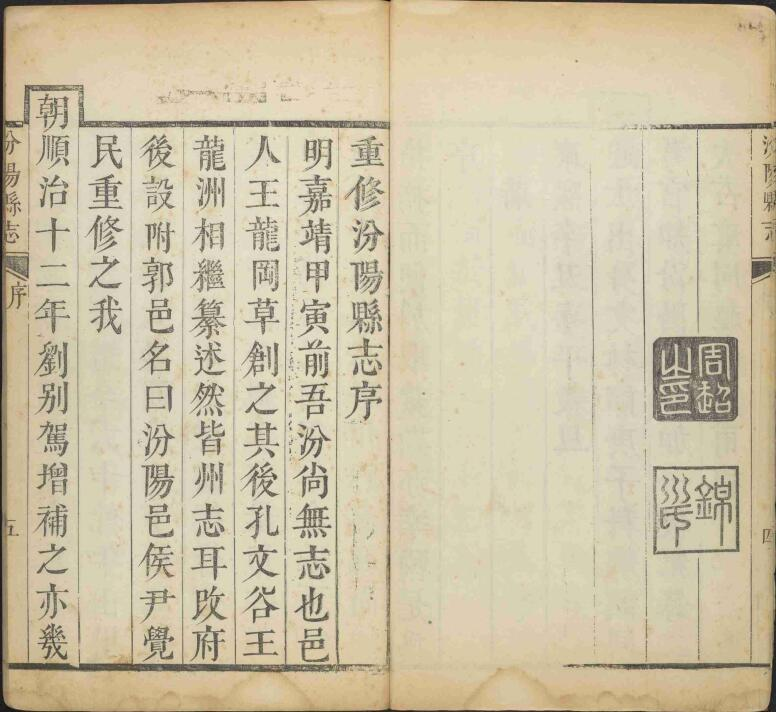 汾陽縣志
四
周
山印
錦
重修汾陽縣志序
明嘉靖甲寅前吾汾尚無志也邑
人王龍岡草創之其後孔文谷王
龍洲相繼纂述然皆州志耳改府
後設附郭邑名曰汾陽邑侯尹覺
民重修之我
朝順治十二年劉别駕增補之亦幾
汾陽縣志
序
五